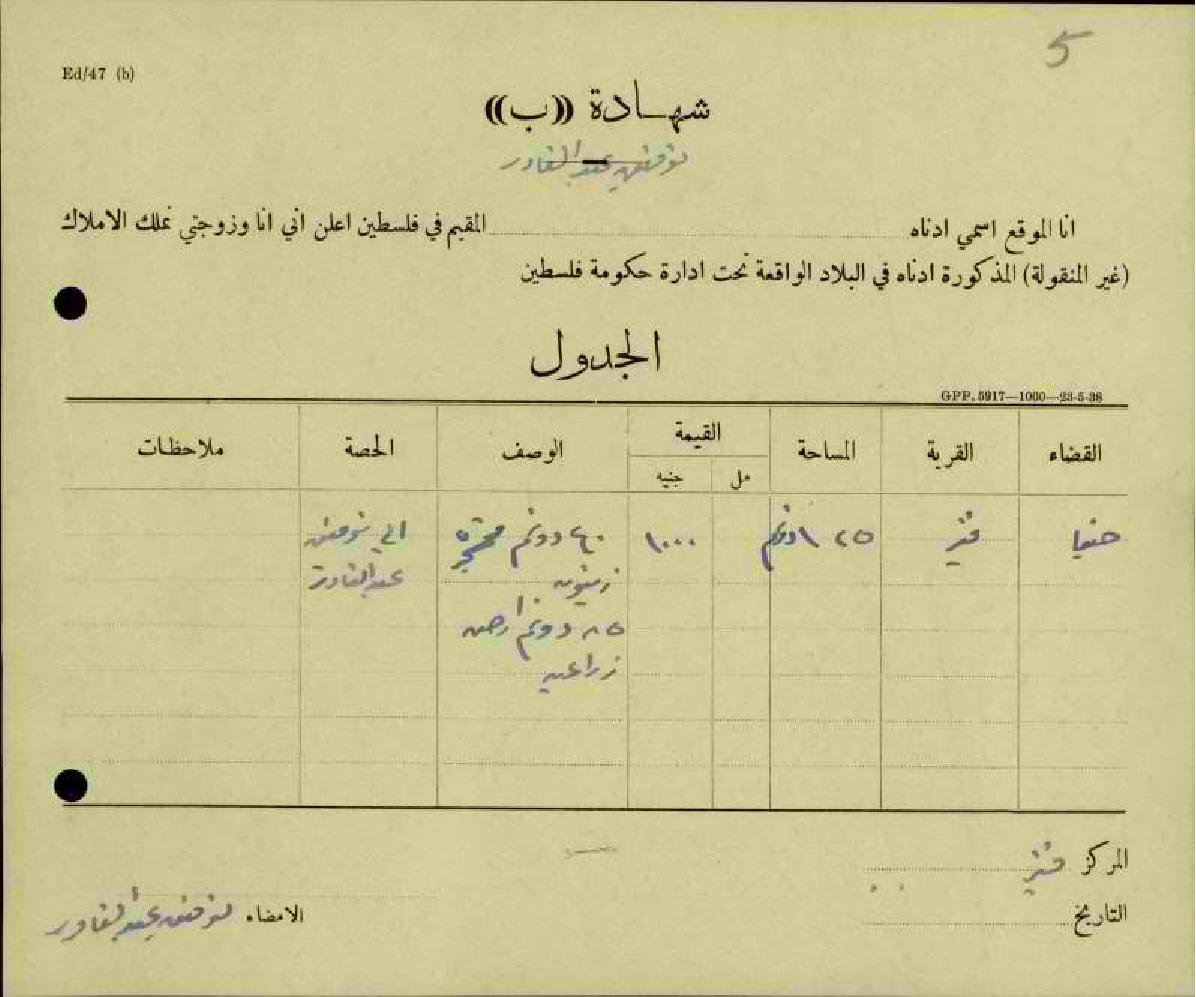 5
Ed/47 (b)
شهادة ((ب))
توفيق عبد القادر
انا الموقع اسمي ادناه المقيم في فلسطين اعلن اني انا وزوجتي نملك الاملاك
(غير المنقولة) المذكورة ادناه في البلاد الواقعة تحت ادارة حكومة فلسطين
الجدول
GPP. 5917—1000—23-5-38
القضاء القرية المساحة القيمة الوصف الحصة ملاحظات
مل جنيه
حيفا قنير ١٢٥ دونم ١٠٠٠ ٤٠ دونم الى توفيق
زيتون عبد القادر
٨٥ دونم ارض
زراعيه
المركز قنير
التاريخ
الامضاء توفيق عبد القادر